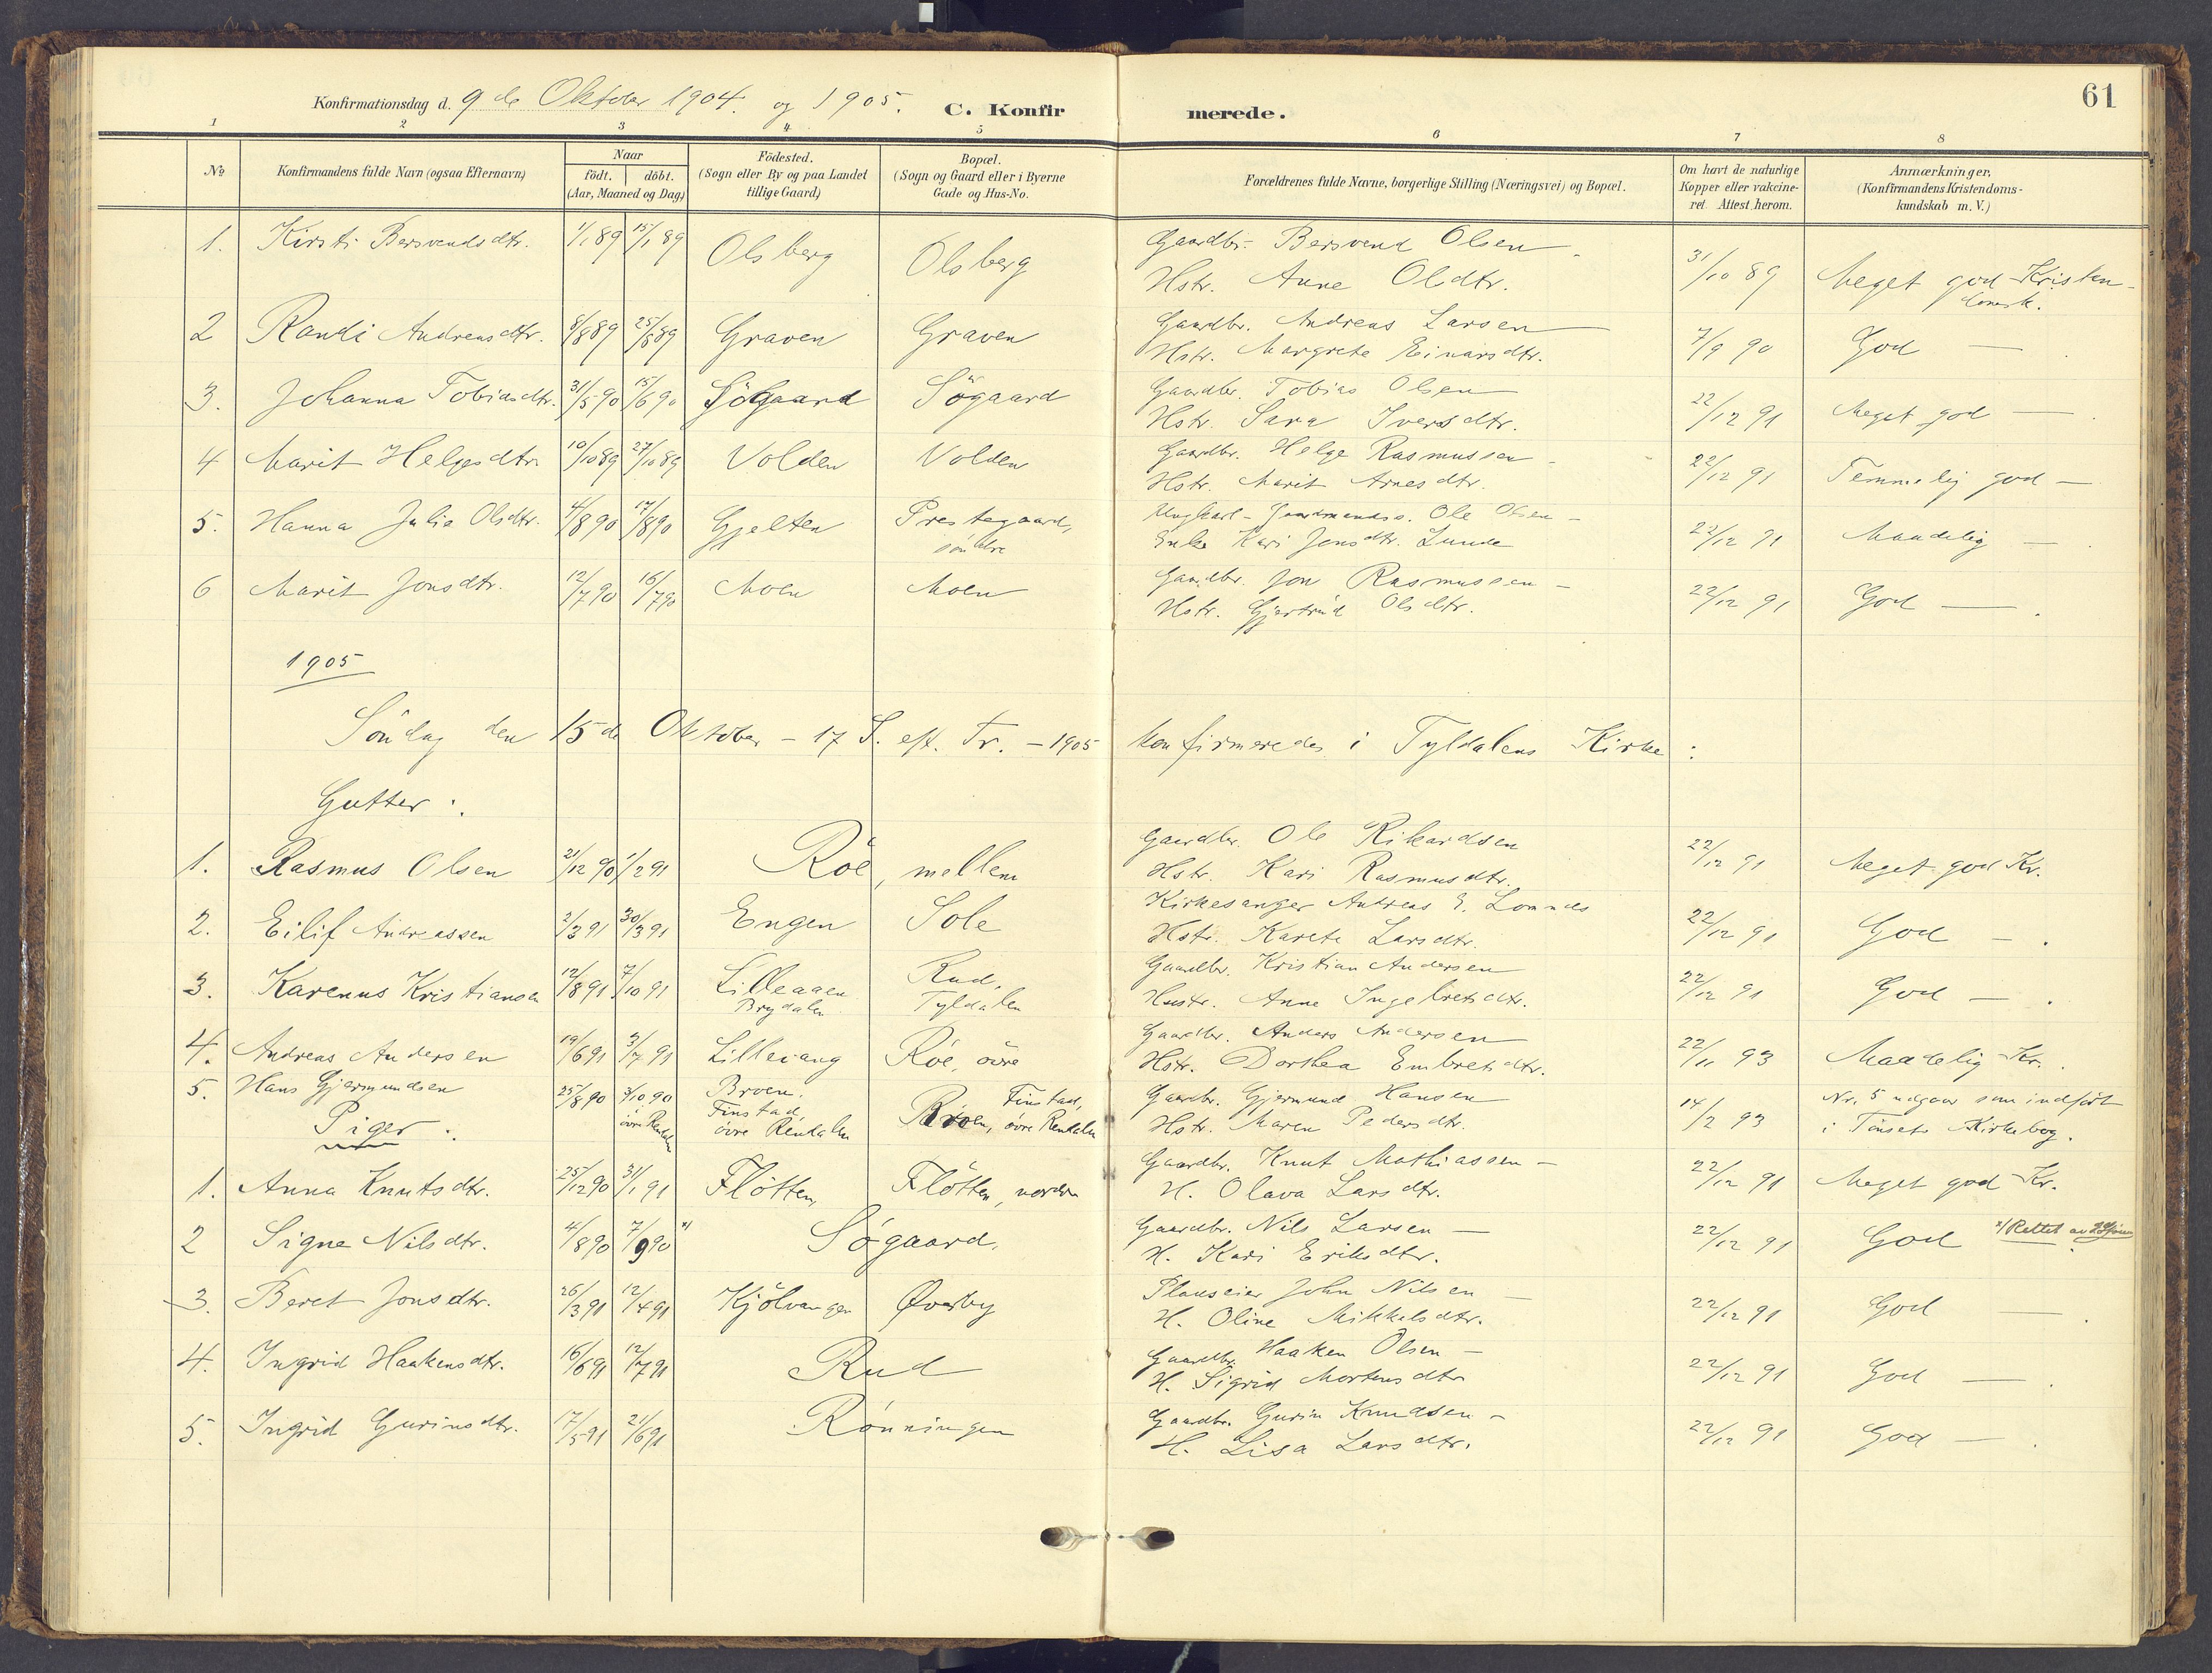 Konfirmationsdag d. 9de Oktober 1904. og 1905. C. Konfirmerede. 61
1 2 3 4 5 6 7 8
No
Konfirmandens fulde Navn (ogsaa Efternavn)
Naar födt. döbt. (Aar, Maaned og Dag)
Födested. (Sogn eller By og paa Landet tillige Gaard)
Bopæl. (Sogn og Gaard eller i Byerne Gade og Hus-No.
Forældrenes fulde Navne, borgerlige Stilling (Næringsvei) og Bopæl.
Om havt de naturlige Kopper eller vakcineret. Attest herom.
Anmærkninger, (Konfirmandens Kristendomskundskab m. V.)
1. Kirsti Bersvendsdtr. 1/1 89 15/1 89 Olsberg Olsberg Gaardbr. Bersvend Olsen - 31/10 89 Meget god Kristen-
Hstr. Anne Olsdtr. domsk.
2 Randi Andreasdtr. 8/8 89 25/8 89 Graven Graven Gaardbr. Andreas Larsen 7/9 90 God — .
Hstr. Margrete Einarsdtr.
3. Johanna Tobiasdtr. 31/5 90 15/6 90 Sögaard Sögaard Gaardbr. Tobias Olsen 22/12 91 Meget god — .
Hstr. Sara Iversdtr.
4 Marit Helgesdtr. 10/10 89 27/10 89 Volden Volden Gaardbr. Helge Rasmussen - 22/12 91 Temmelig god —
Hstr. Marit Arnesdtr.
5. Hanna Julie Olsdtr. 4/8 90 17/8 90 Gjelten Prestegaard, söndre Ungkarl - Gaardmands. Ole Olsen - 22/12 91 Maadelig — .
Enke Kari Jonsdtr. Lunde
6 Marit Jonsdtr. 12/7 90 16/7 90 Moen Moen Gaardbr. Jon Rasmussen - 22/12 91 God — .
Hstr. Gjertrud Olsdtr.
1905
Söndag den 15de Oktober - 17 S. eft. Tr. - 1905 konfirmeredes i Tyldalens Kirke :
Gutter :
1. Rasmus Olsen 21/12 90 1/2 91 Röe, mellem Gaardbr. Ole Rikardsen 22/12 91 Meget god Kr.
Hstr. Kari Rasmusdtr.
2. Eilif Andreassen 2/3 91 30/3 91 Engen Sole Kirkesanger Andreas E. Lomnes 22/12 91 God — .
Hstr. Karete Larsdtr.
3. Karenus Kristiansen 12/8 91 7/10 91 Lilleaaen Brydalen Rud, Tyldalen Gaardbr. Kristian Andersen 22/12 91 God — .
Hustr. Anne Ingebretsdtr.
4. Andreas Andersen 19/6 91 3/7 91 Lillevang Röe, övre Gaardbr. Anders Andersen 22/11 93 Maadelig Kr. .
Hstr. Dorthea Embretsdtr.
5. Hans Gjermundsen 25/8 90 3/10 90 i övre Rendalen Broen, Finstad, övre Rendalen Broen, Finstad, övre Rendalen Gaardbr. Gjermund Hansen 14/2 93 Nr. 5 udgaar som indfört
Hstr. Maren Pedersdtr. i Tönsets Kirkebog.
Piger :
1. Anna Knutsdtr. 25/12 90 31/1 91 Flötten, Flötten, nordre Gaardbr. Knut Mathiassen - 22/12 91 Meget god Kr.
H. Olava Larsdtr.
2 Signe Nilsdtr. 4/8 90 7/9 90 x) Sögaard, Gaardbr. Nils Larsen — 22/12 91 God x) Rettet av
H. Kari Eriksdtr.
3. Beret Jonsdtr. 26/3 91 12/4 91 Kjölvangen Øverby Pladseier John Nilsen — 22/12 91 God — .
H. Oline Mikkelsdtr.
4. Ingrid Haakensdtr. 16/6 91 12/7 91 Rud Gaardbr. Haaken Olsen — 22/12 91 God — .
H. Sigrid Mortensdtr
5. Ingrid Gurinsdtr. 17/5 91 21/6 91 Rönningen Gaardbr. Gurin Knudsen - 22/12 91 God — .
H. Lisa Larsdtr.